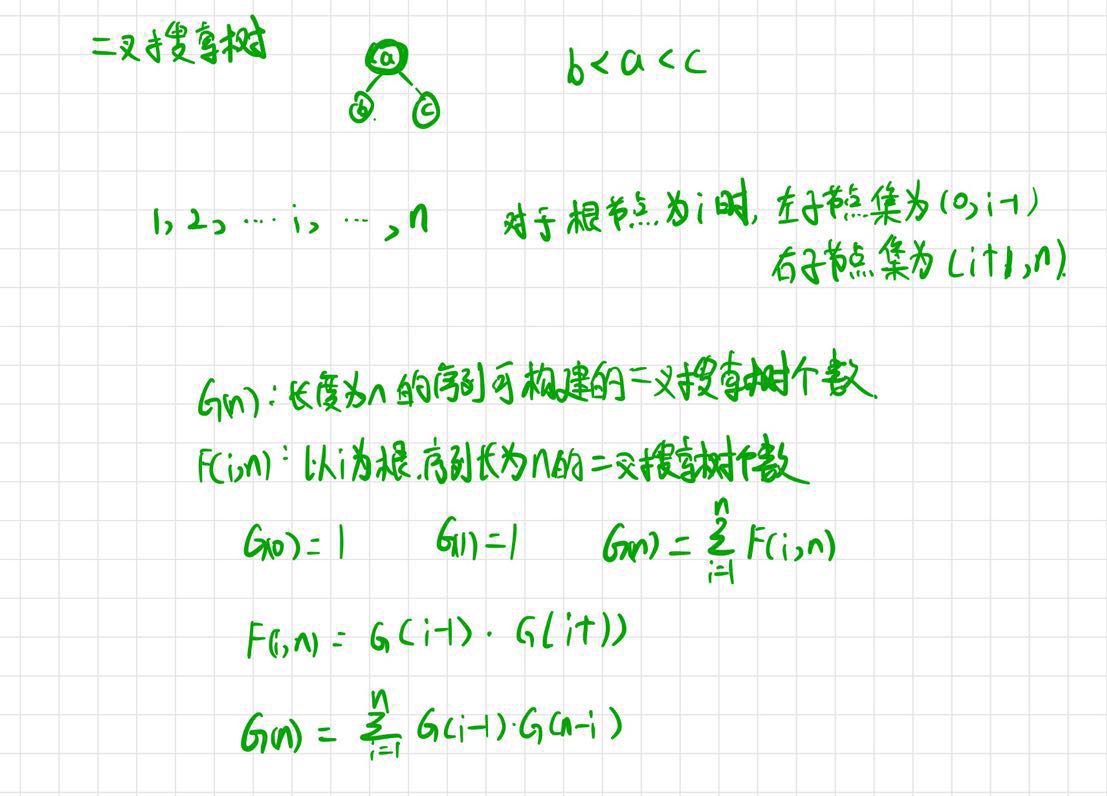 二叉搜索树
a
b<a<c
b c
1, 2, … i, … , n 对于根节点为i时, 左子节点集为(0, i-1)
右子节点集为(i+1, n).
G(n): 长度为n的序列可构建的二叉搜索树个数.
F(i,n): 以i为根.序列长为n的二叉搜索树个数
G(0)=1 G(1)=1 G(n)=∑_{i=1}^{n} F(i,n)
F(i,n) = G(i-1)·G(i+))
G(n) = ∑_{i=1}^{n} G(i-1)·G(n-i)